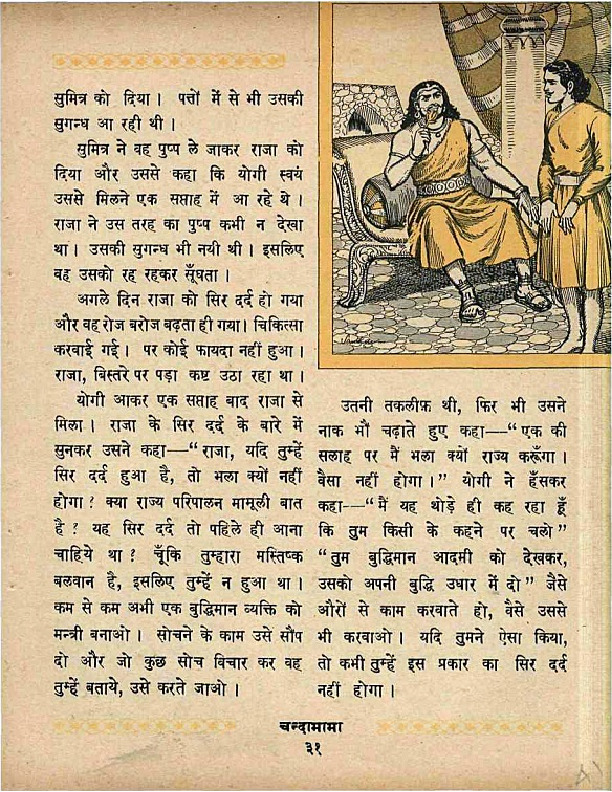 सुमित्र को दिया। पत्तों में से भी उसकी
सुगन्ध आ रही थी।
सुमित्र ने वह पुष्प ले जाकर राजा को
दिया और उससे कहा कि योगी स्वयं
उससे मिलने एक सप्ताह में आ रहे थे।
राजा ने उस तरह का पुष्प कभी न देखा
था। उसकी सुगन्ध भी नयी थी। इसलिए
वह उसको रह रहकर सूँघता।
अगले दिन राजा को सिर दर्द हो गया
और वह रोज बरोज बढ़ता ही गया। चिकित्सा
करवाई गई। पर कोई फायदा नहीं हुआ।
राजा, बिस्तरे पर पड़ा कष्ट उठा रहा था।
योगी आकर एक सप्ताह बाद राजा से
मिला। राजा के सिर दर्द के बारे में
सुनकर उसने कहा—“राजा, यदि तुम्हें
सिर दर्द हुआ है, तो भला क्यों नहीं
होगा? क्या राज्य परिपालन मामूली बात
है? यह सिर दर्द तो पहिले ही आना
चाहिये था? चूँकि तुम्हारा मस्तिष्क
बलवान है, इसलिए तुम्हें न हुआ था।
कम से कम अभी एक बुद्धिमान व्यक्ति को
मन्त्री बनाओ। सोचने के काम उसे सौंप
दो और जो कुछ सोच विचार कर वह
तुम्हें बताये, उसे करते जाओ।
उतनी तकलीफ़ थी, फिर भी उसने
नाक भौं चढ़ाते हुए कहा—“एक की
सलाह पर मैं भला क्यों राज्य करूँगा।
वैसा नहीं होगा।” योगी ने हँसकर
कहा—“मैं यह थोड़े ही कह रहा हूँ
कि तुम किसी के कहने पर चलो”
“तुम बुद्धिमान आदमी को देखकर,
उसको अपनी बुद्धि उधार में दो” जैसे
औरों से काम करवाते हो, वैसे उससे
भी करवाओ। यदि तुमने ऐसा किया,
तो कभी तुम्हें इस प्रकार का सिर दर्द
नहीं होगा।
चन्दामामा
३१